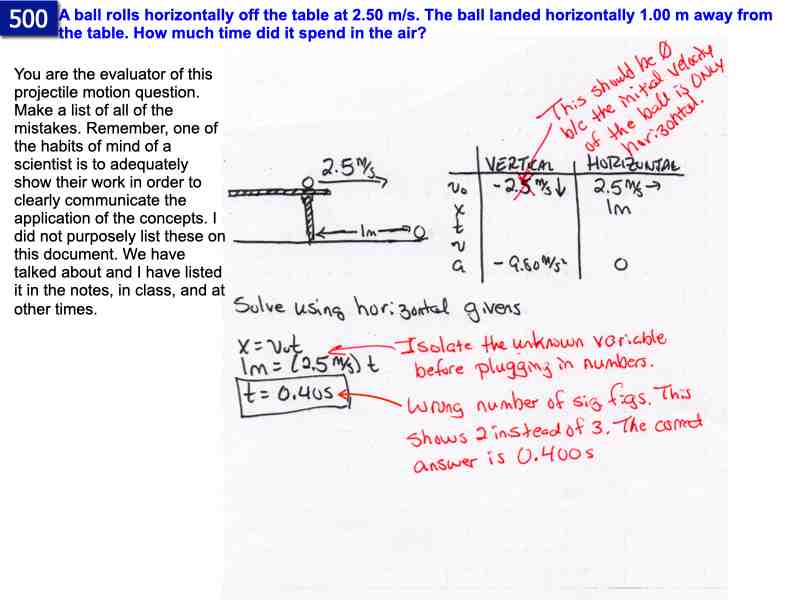 500
A ball rolls horizontally off the table at 2.50 m/s. The ball landed horizontally 1.00 m away from
the table. How much time did it spend in the air?
You are the evaluator of this
projectile motion question.
Make a list of all of the
mistakes. Remember, one of
the habits of mind of a
scientist is to adequately
show their work in order to
clearly communicate the
application of the concepts. I
did not purposely list these on
this document. We have
talked about and I have listed
it in the notes, in class, and at
other times.
This should be Ø
b/c the initial velocity
of the ball is ONLY
horizontal.
2.5 m/s
1m
VERTICAL HORIZONTAL
v₀ -2.5 m/s ↓ 2.5 m/s →
x 1m
t
v
a -9.80 m/s² 0
Solve using horizontal givens
x = v₀t
1m = (2.5 m/s) t
t = 0.40s
Isolate the unknown variable
before plugging in numbers.
Wrong number of sig figs. This
shows 2 instead of 3. The correct
answer is 0.400s